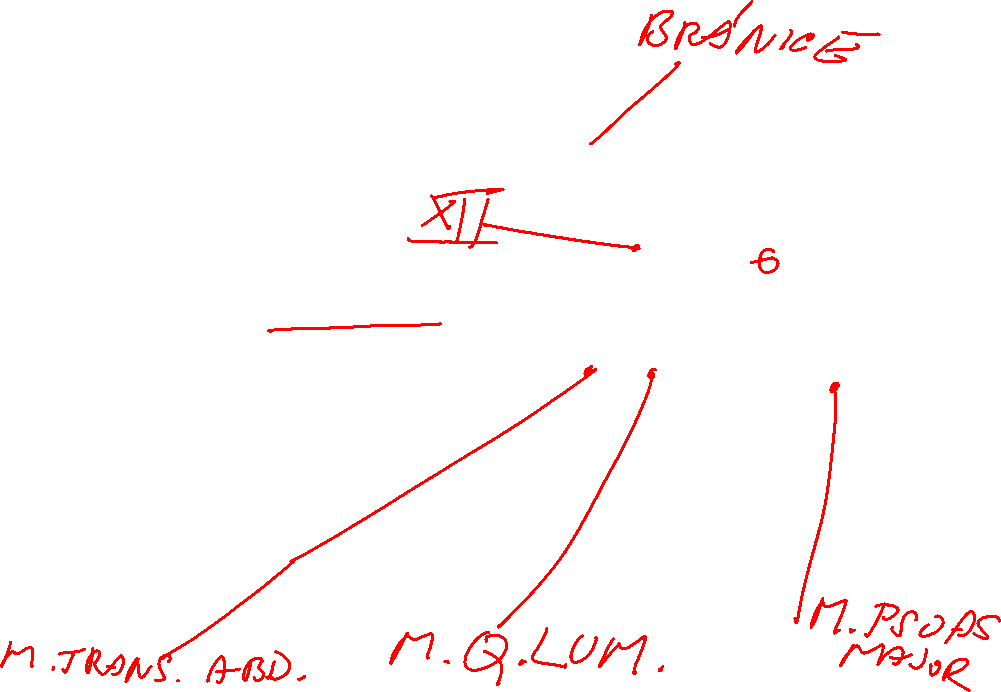 BRÁNICE
XII
6
M. TRANS. ABD.
M. Q. LUM.
M. PSOAS
MAJOR